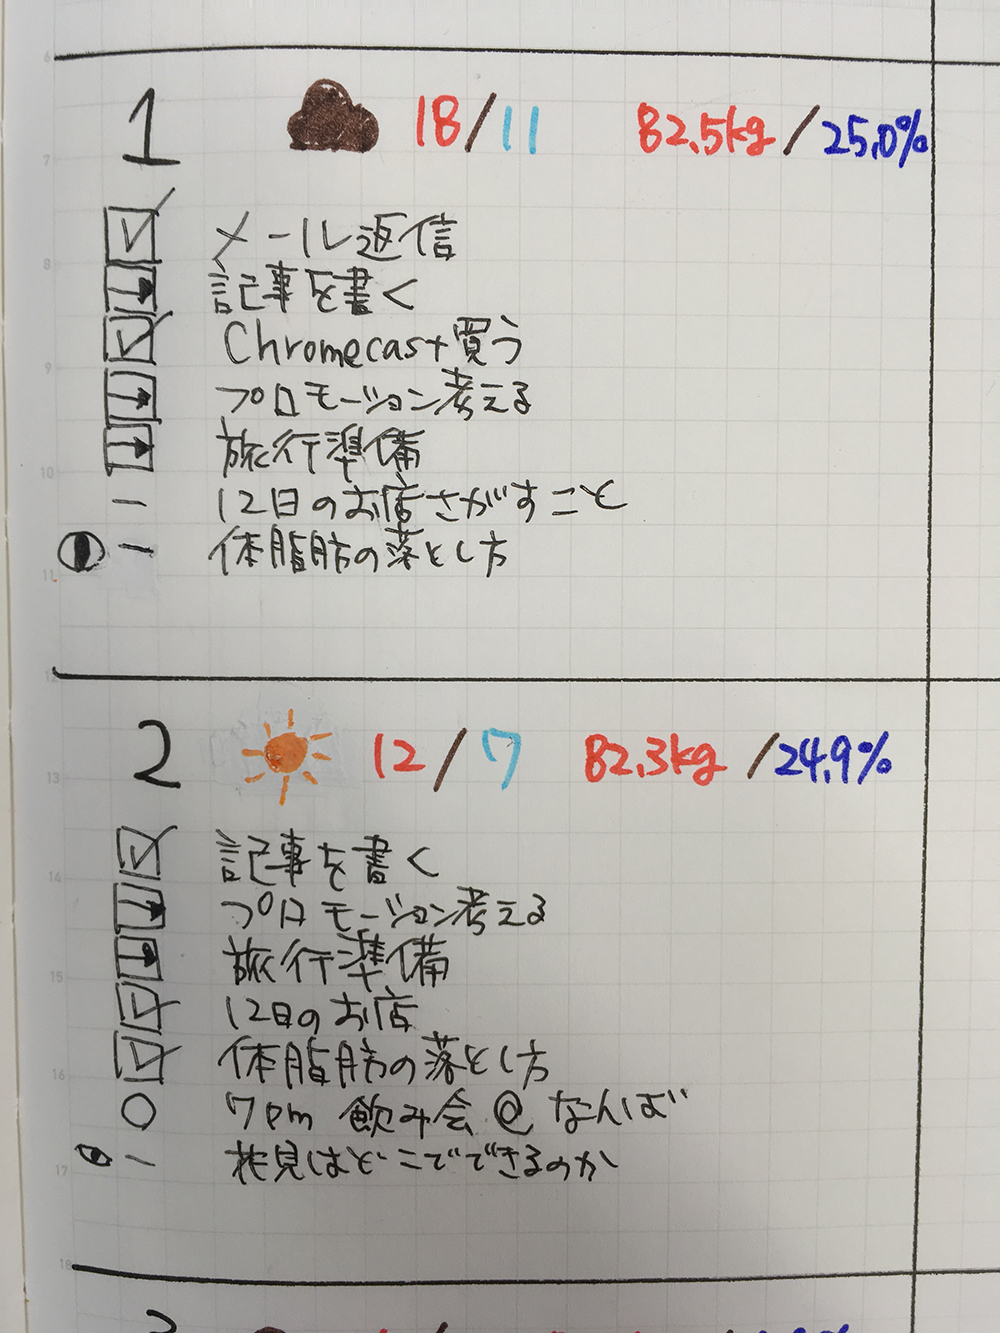 6
1 18/11 82.5kg/25.0%
7
メール返信
8
記事を書く
Chromecast買う
9
プロモーション考える
旅行準備
10
- 12日のお店さがすこと
- 体脂肪の落とし方
11
12
2 12/7 82.3kg/24.9%
13
記事を書く
14
プロモーション考える
旅行準備
15
12日のお店
体脂肪の落とし方
16
7pm 飲み会@なんば
- 花見はどこでできるのか
17
18
3